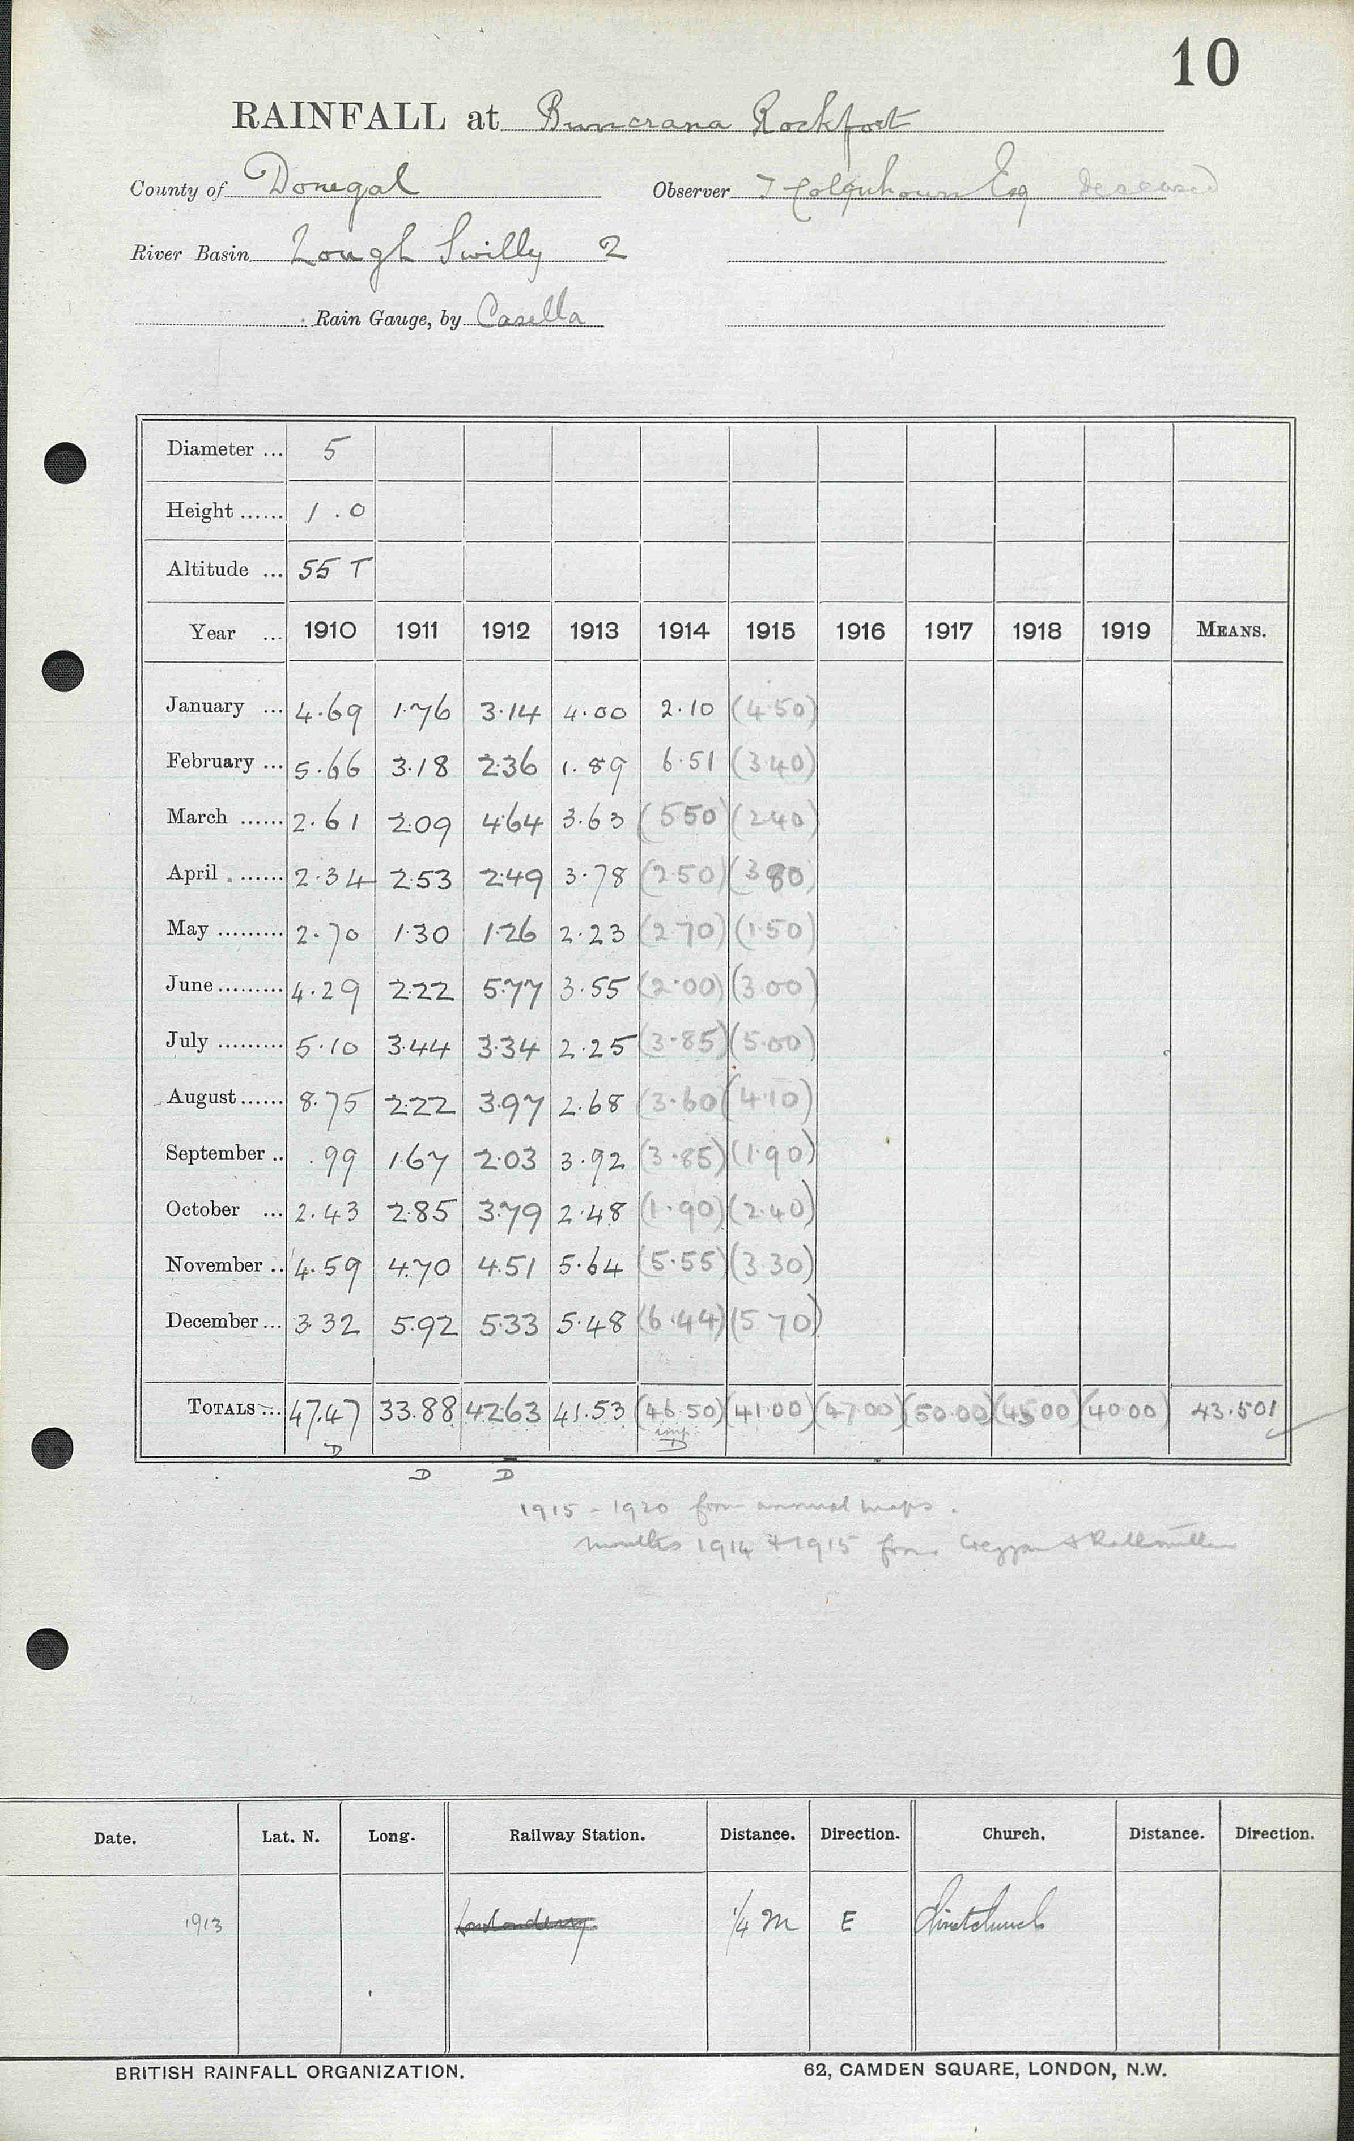 10
RAINFALL at Buncrana Rockfort
County of Donegal Observer J Colquhoun Esq deceased
River Basin Lough Swilly 2
Rain Gauge, by Casella
Diameter ... 5
Height ...... 1.0
Altitude ... 55 T
Year ... 1910 1911 1912 1913 1914 1915 1916 1917 1918 1919 MEANS.
January ... 4.69 1.76 3.14 4.00 2.10 (4.50)
February ... 5.66 3.18 2.36 1.89 6.51 (3.40)
March ...... 2.61 2.09 4.64 3.63 (5.50) (2.40)
April ....... 2.34 2.53 2.49 3.78 (2.50) (3.80)
May ......... 2.70 1.30 1.26 2.23 (2.70) (1.50)
June ......... 4.29 2.22 5.77 3.55 (2.00) (3.00)
July ......... 5.10 3.44 3.34 2.25 (3.85) (5.00)
August ...... 8.75 2.22 3.97 2.68 (3.60) (4.10)
September .. .99 1.67 2.03 3.92 (3.85) (1.90)
October ... 2.43 2.85 3.79 2.48 (1.90) (2.40)
November .. 4.59 4.70 4.51 5.64 (5.55) (3.30)
December ... 3.32 5.92 5.33 5.48 (6.44) (5.70)
TOTALS ... 47.47 33.88 42.63 41.53 (46.50) (41.00) (47.00) (50.00) (45.00) (40.00) 43.501
D D
D D
1915 - 1920 from annual maps.
months 1914 & 1915 from Creggan & Rathmullen
Date. Lat. N. Long. Railway Station. Distance. Direction. Church. Distance. Direction.
1913 Londonderry 1/4 M E Christchurch
BRITISH RAINFALL ORGANIZATION. 62, CAMDEN SQUARE, LONDON, N.W.